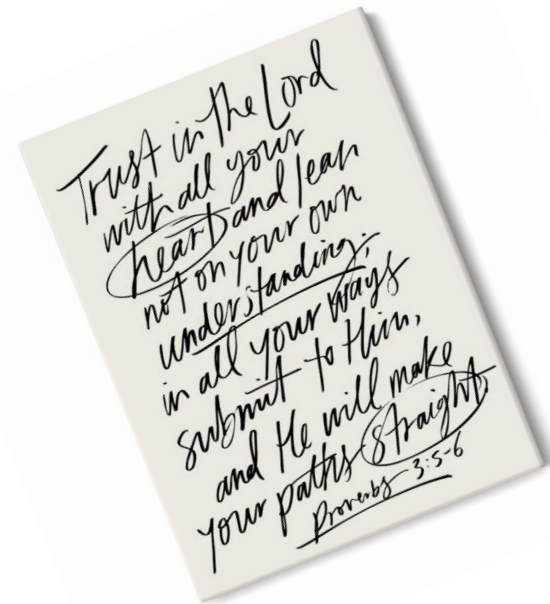 Trust in the Lord
with all your
heart and lean
not on your own
understanding;
in all your ways
submit to Him,
and He will make
your paths straight.
Proverbs 3:5-6